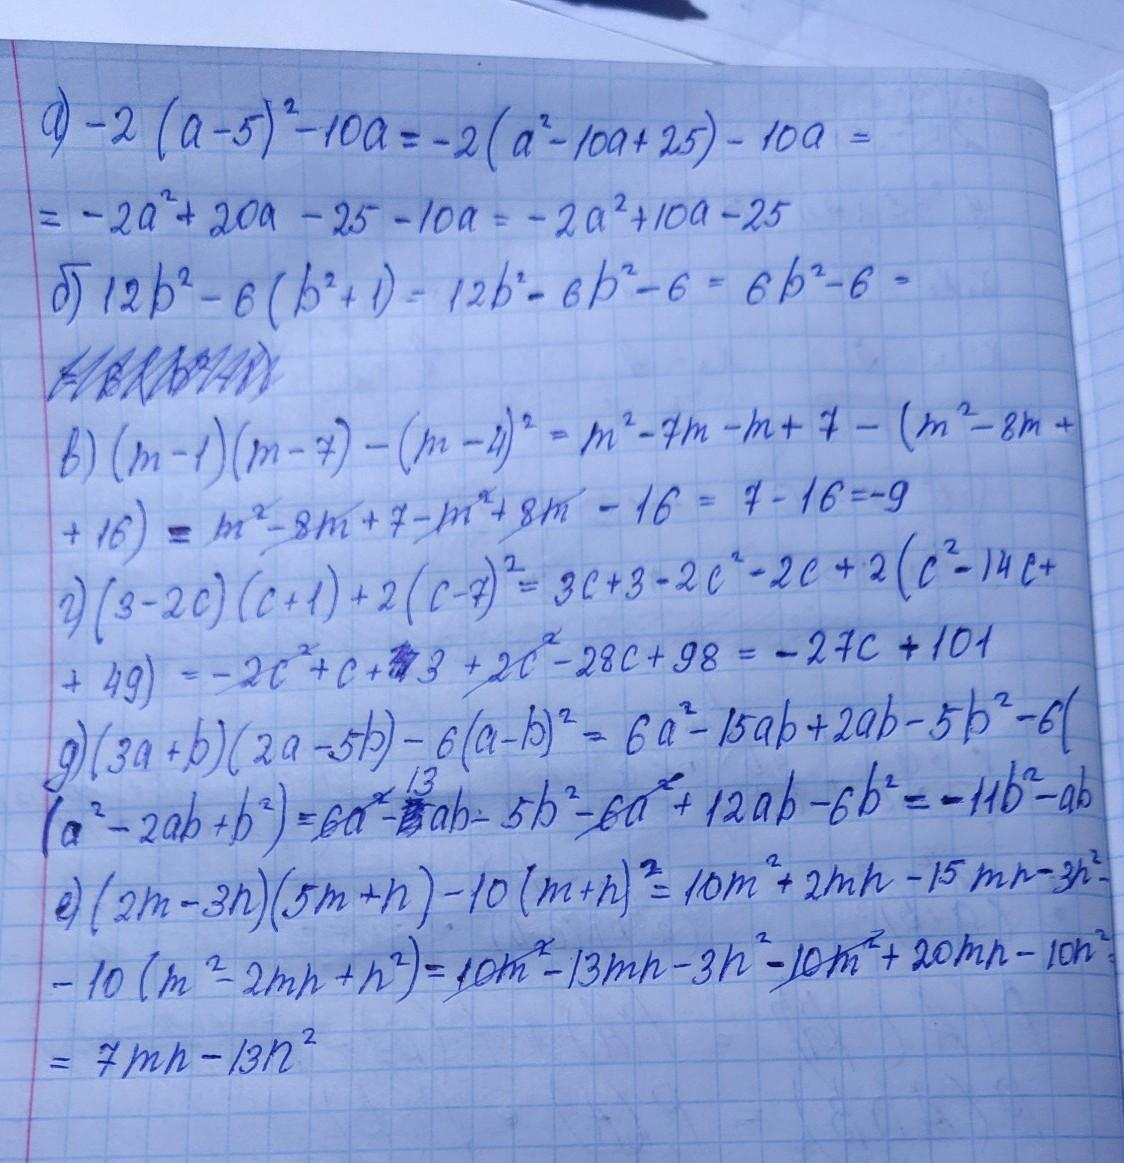 а) -2 (a-5)² - 10a = -2 (a² - 10a + 25) - 10a =
= -2a² + 20a - 25 - 10a = -2a² + 10a - 25
б) 12b² - 6 (b² + 1) - 12b² - 6b² - 6 = 6b² - 6 =
в) (m-1)(m-7) - (m-4)² = m² - 7m - m + 7 - (m² - 8m +
+ 16) = m² - 8m + 7 - m² + 8m - 16 = 7 - 16 = -9
г) (3-2c)(c+1) + 2(c-7)² = 3c + 3 - 2c² - 2c + 2(c² - 14c +
+ 49) = -2c² + c + 3 + 2c² - 28c + 98 = -27c + 101
д) (3a+b)(2a-5b) - 6(a-b)² = 6a² - 15ab + 2ab - 5b² - 6(
(a² - 2ab + b²) = 6a² - 13ab - 5b² - 6a² + 12ab - 6b² = -11b² - ab
е) (2m-3n)(5m+n) - 10(m+n)² = 10m² + 2mn - 15mn - 3n² -
- 10 (m² - 2mn + n²) = 10m² - 13mn - 3n² - 10m² + 20mn - 10n² =
= 7mn - 13n²